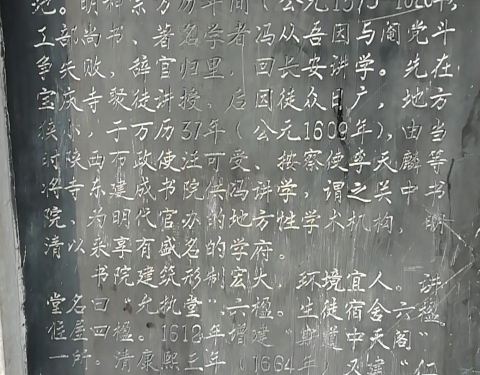 范。明神宗万历年间（公元1573—1620年，
工部尚书、著名学者冯从吾因与阉党斗
争失败，辞官归里，回长安讲学。先在
宝庆寺聚徒讲授，后因徒众日广，地方
狭小，于万历37年（公元1609年），由当
时陕西布政使汪可受、按察使李天麟等
将寺东建成书院供冯讲学，谓之关中书
院，为明代官办的地方性学术机构，明
清以来享有盛名的学府。
书院建筑形制宏大，环境宜人。讲
堂名曰“允执堂”、六楹。生徒宿舍六楹。
住屋四楹。1612年增建“斯道中天阁”
一所。清康熙三年（1664年）又建“仁